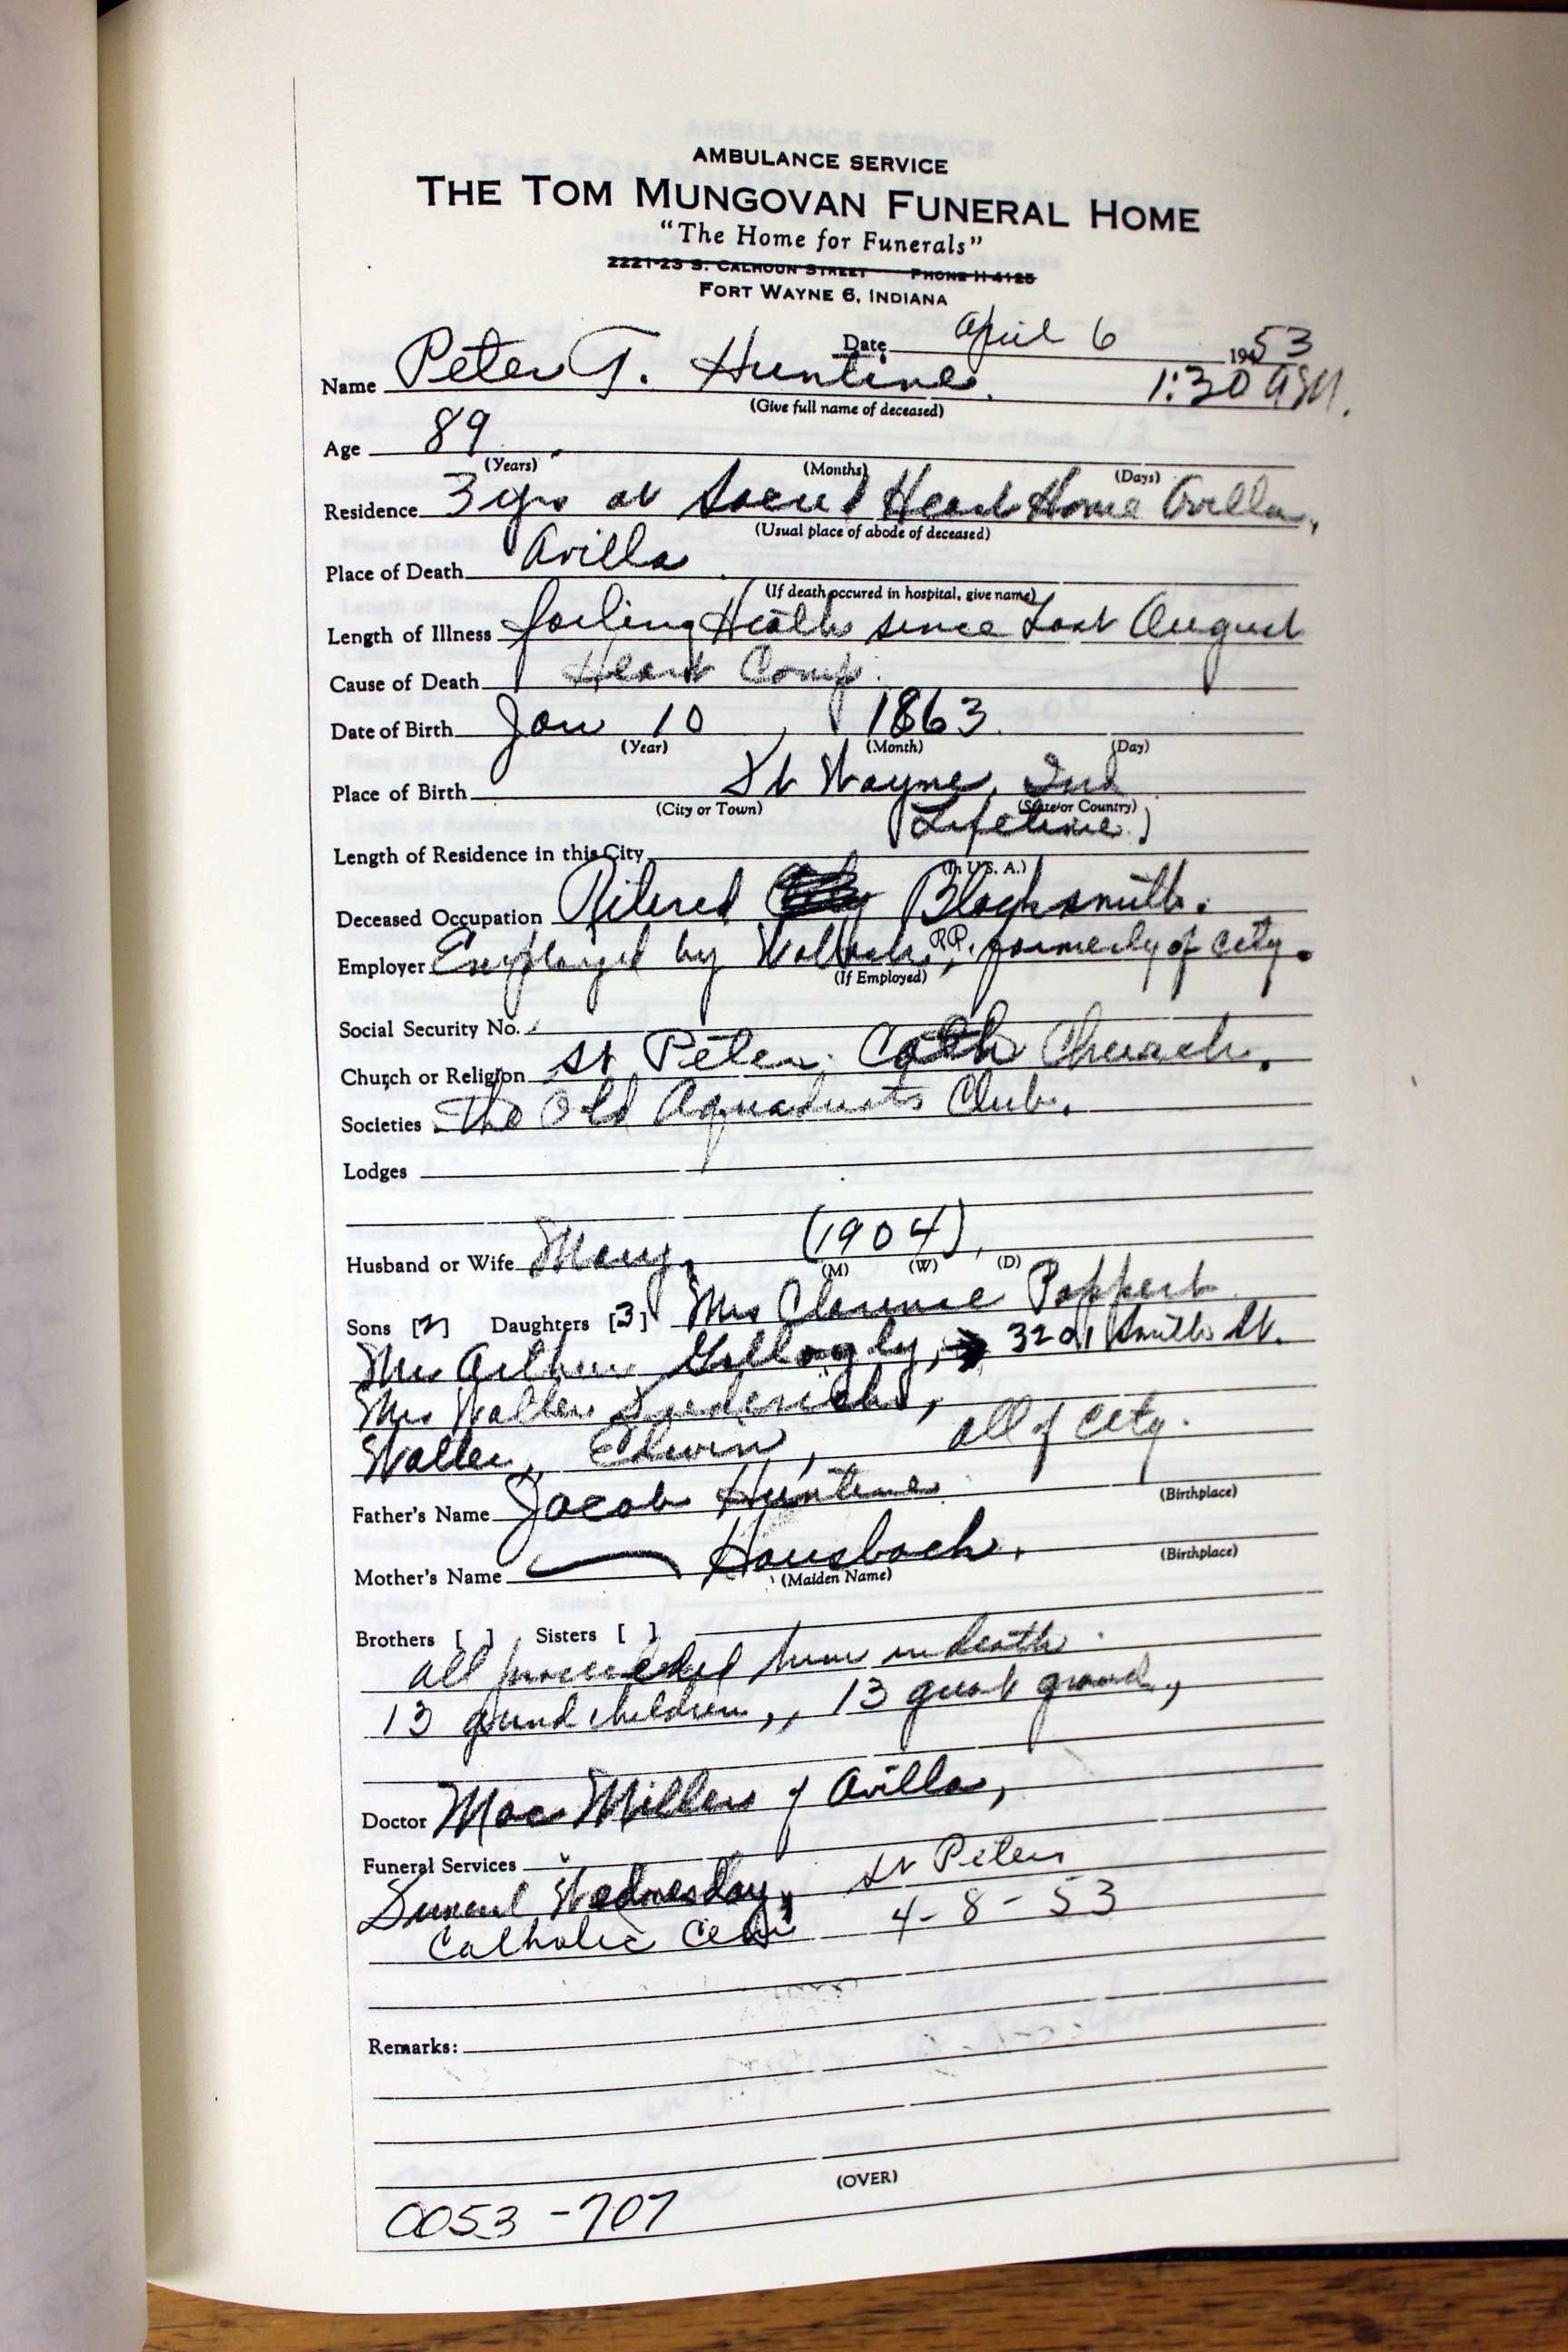 AMBULANCE SERVICE
THE TOM MUNGOVAN FUNERAL HOME
"The Home for Funerals"
2221-23 S. CALHOUN STREET PHONE H-4125
FORT WAYNE 6, INDIANA
Date April 6 1953
Name Peter T. Huntine. 1:30 AM.
(Give full name of deceased)
Age 89
(Years) (Months) (Days)
Residence 3 yrs at Sacred Heart Home Avilla,
(Usual place of abode of deceased)
Place of Death Avilla
(If death occured in hospital, give name)
Length of Illness failing Health since Last August
Cause of Death Heart Comp.
Date of Birth Jan 10, 1863
(Year) (Month) (Day)
Place of Birth Ft Wayne, Ind
(City or Town) (State or Country)
Length of Residence in this City (Lifetime)
(In U. S. A.)
Deceased Occupation Retired Blacksmith.
Employer Employed by Wabash RR, formerly of city.
(If Employed)
Social Security No.
Church or Religion St Peter Cath Church.
Societies The Old Aquaducts Club.
Lodges
Husband or Wife Mary, (1904),
(M) (W) (D)
Sons [2] Daughters [3] Mrs Clarence Poppert
Mrs Arthur Gollogly, → 3201 Smith St.
Mrs Walter
Walter, Edwin, all of city.
Father's Name Jacob Huntine
(Birthplace)
Mother's Name Hausbach.
(Maiden Name) (Birthplace)
Brothers [ ] Sisters [ ]
all preceeded him in death
13 grand children,, 13 great grand.,
Doctor Mac Millen of Avilla,
Funeral Services
Funeral Wednesday, St Peters
Catholic Cem 4-8-53
Remarks:
(OVER)
0053-707